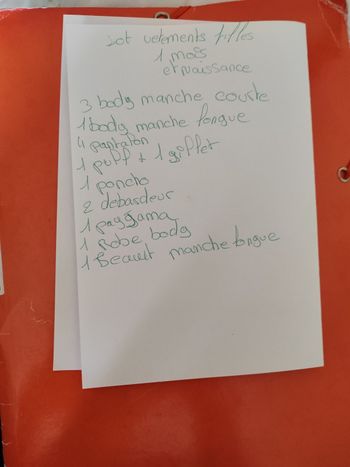 lot vetements filles
1 mois
et naissance
3 body manche courte
1 body manche longue
4 pantalon
1 pull + 1 gillet
1 poncho
2 debardeur
1 payjama
1 Robe body
1 manche longue